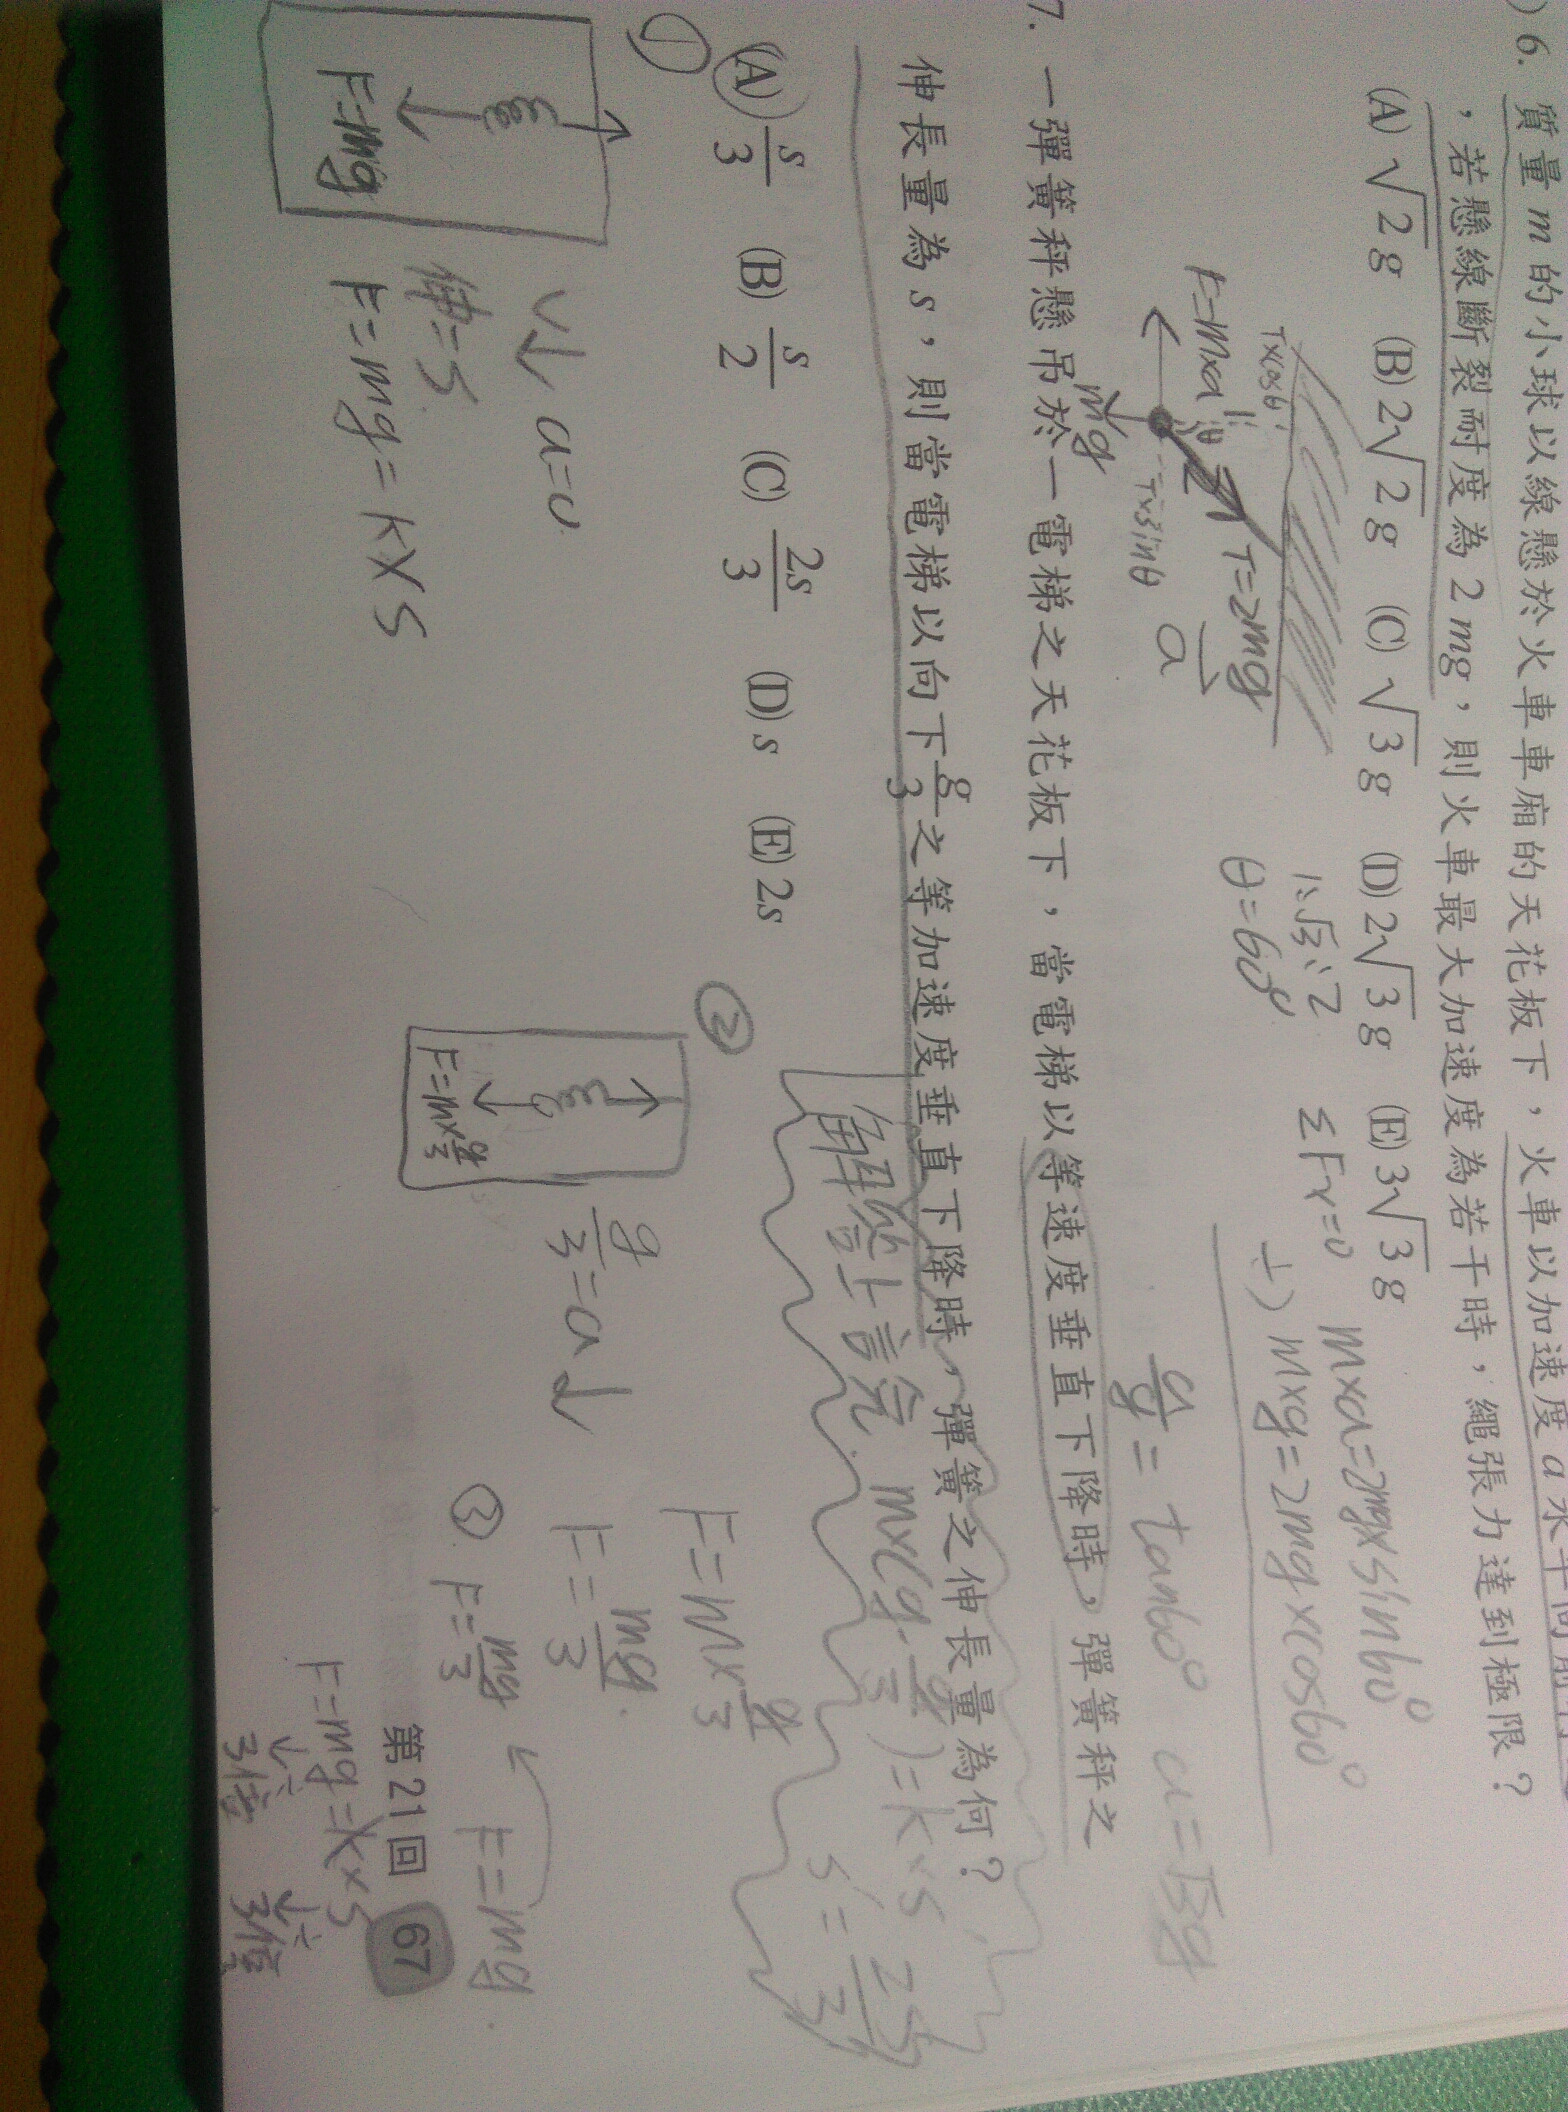 ) 6. 質量 m 的小球以線懸於火車車廂的天花板下，火車以加速度 a 水平向前
，若懸線斷裂耐度為 2 mg，則火車最大加速度為若干時，繩張力達到極限？
(A) √2 g (B) 2√2 g (C) √3 g (D) 2√3 g (E) 3√3 g
T×cosθ
F=m×a
θ
mg
T×sinθ
T=2mg
a
1:√3:2
θ=60°
ΣFx=0
m×a=2mg×sin60°
÷) m×g=2mg×cos60°
a/g = tan60° a=√3g
7. 一彈簧秤懸吊於一電梯之天花板下，當電梯以等速度垂直下降時，彈簧秤之
伸長量為 s，則當電梯以向下 g/3 之等加速度垂直下降時，彈簧之伸長量為何？
(A) s/3 (B) s/2 (C) 2s/3 (D) s (E) 2s
解答上說 m×(g-g/3)=k×s' s'=2s/3
①
F=mg
v↓ a=0
伸=s
F=mg=k×s
②
F=m×g/3
g/3=a↓
F=m×g/3
F=mg/3
③ F=mg/3
F=mg
F=mg=k×s
↓÷3倍 ↓÷3倍
第 21 回 67